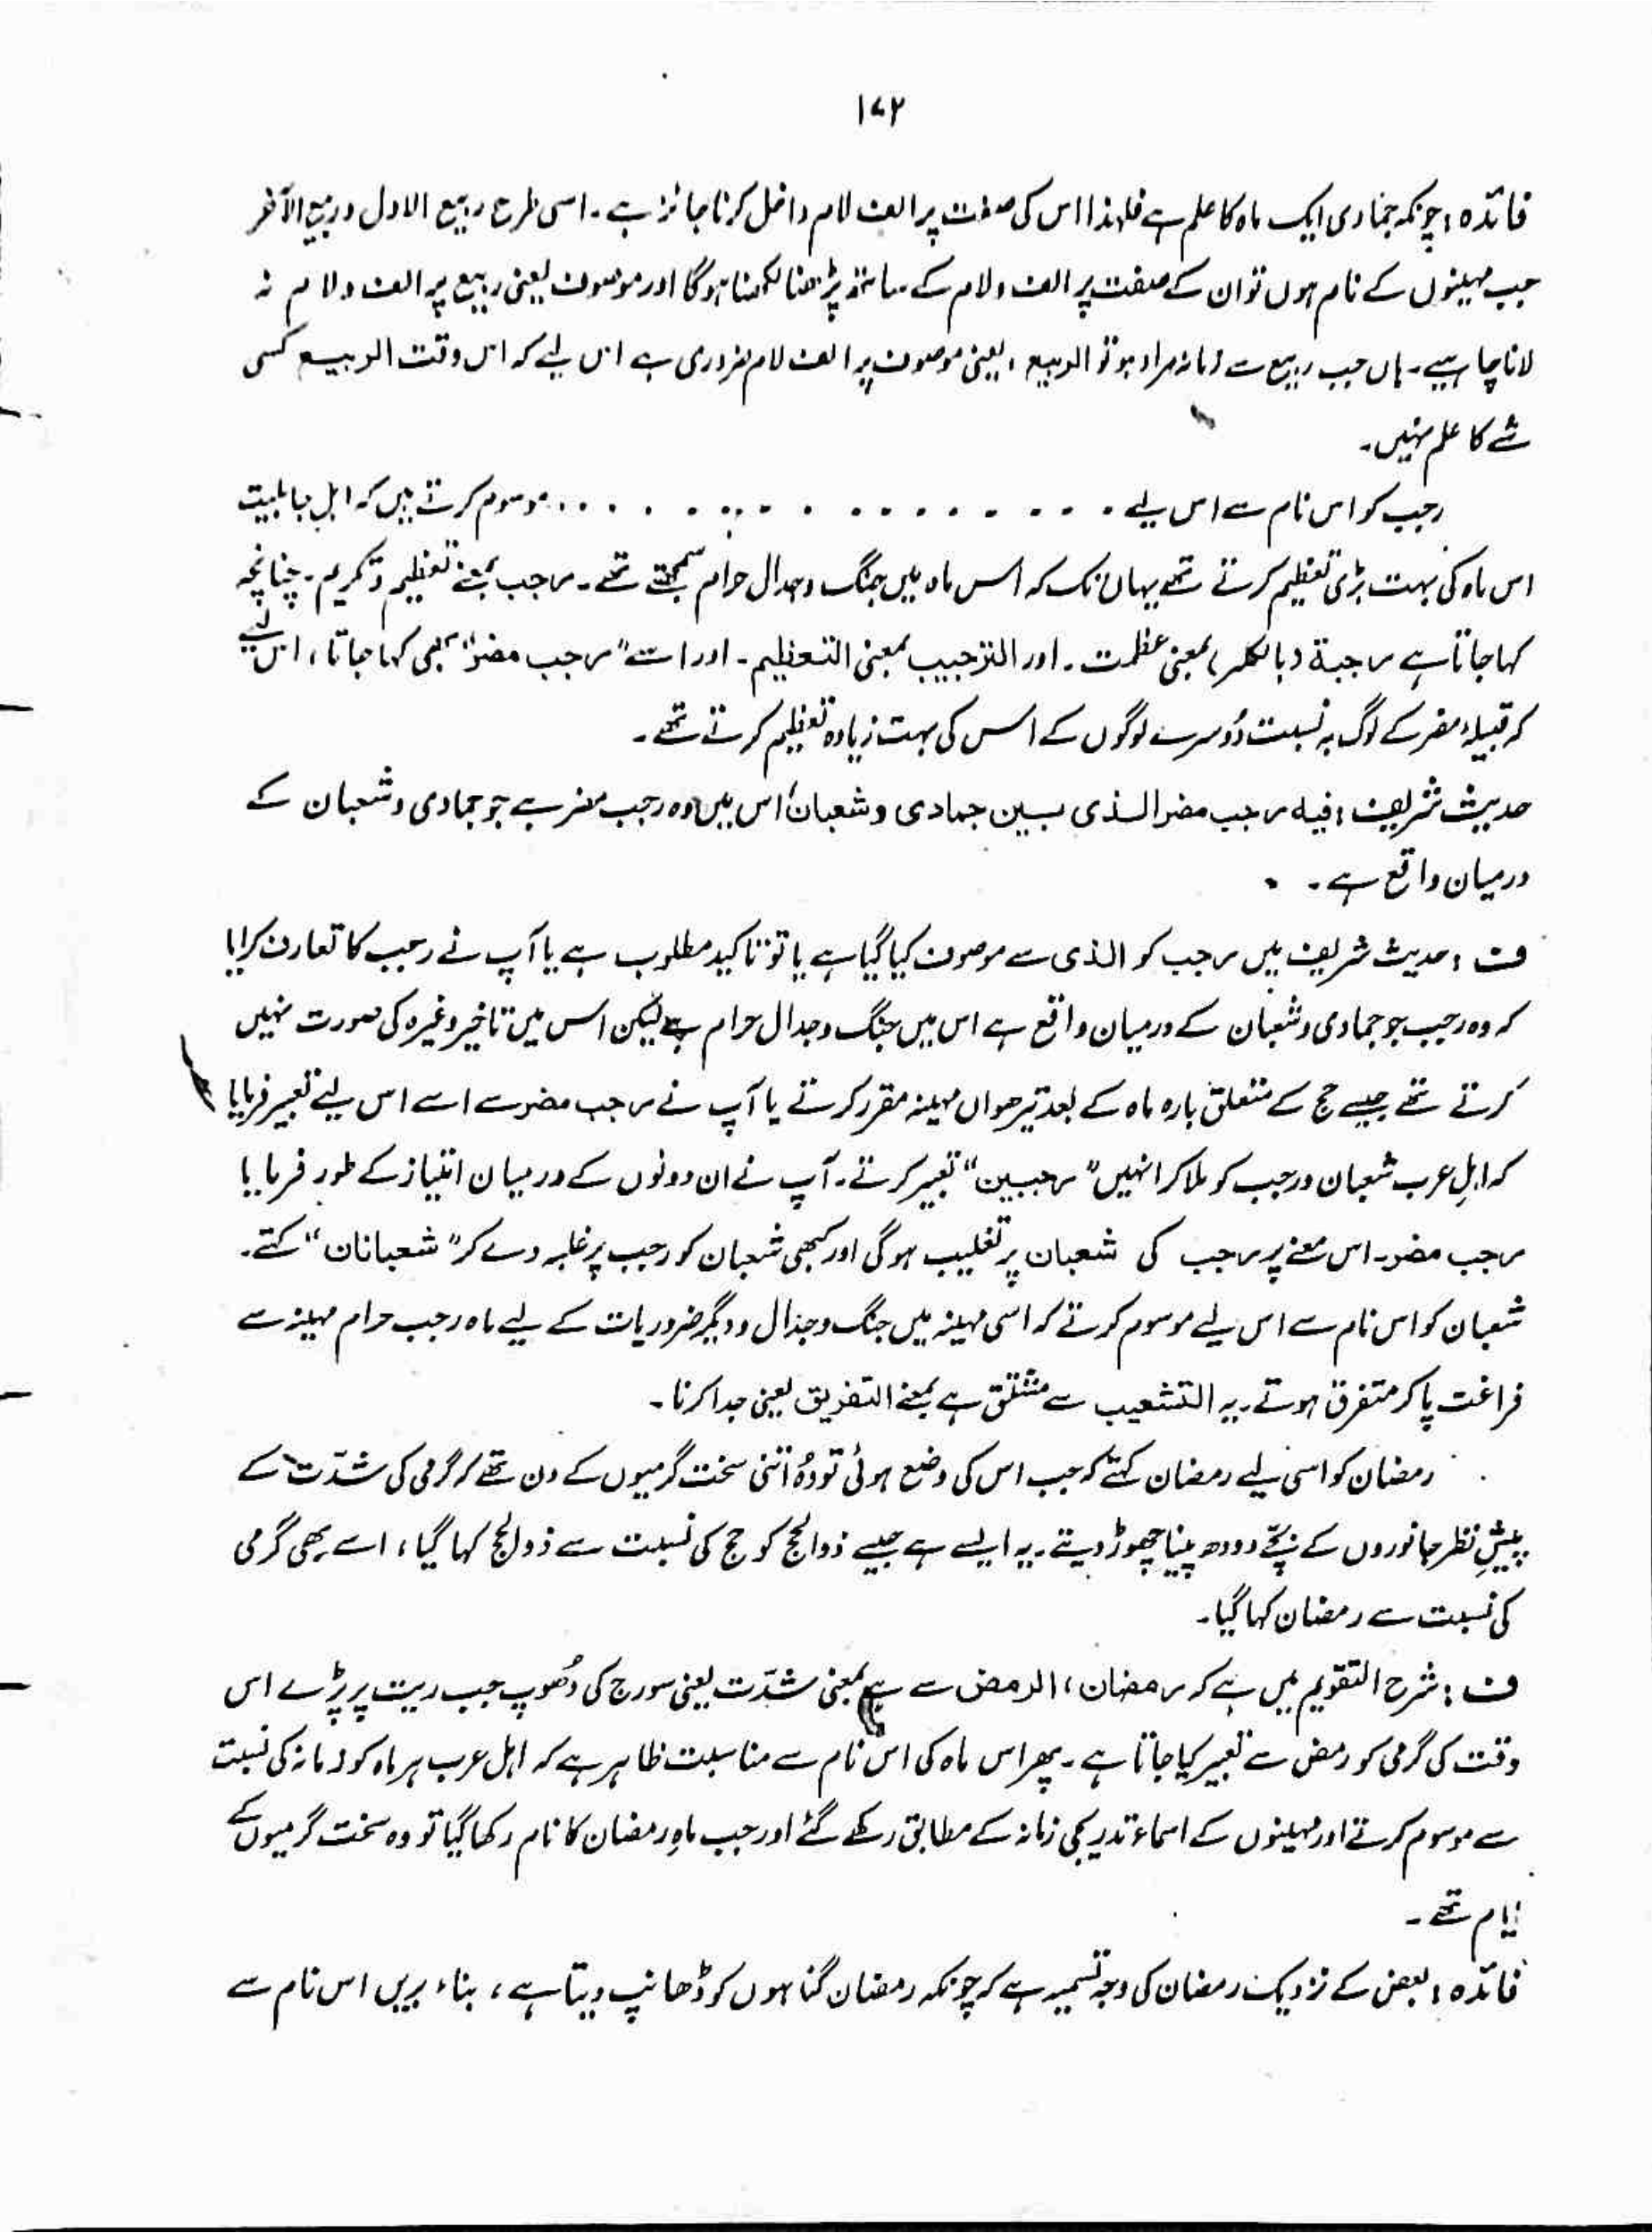 ۱۷۲
فائدہ : چونکہ جمادی ایک ماہ کا علم ہے فلہذا اس کی صفت پر الف لام داخل کرنا جائز ہے۔ اسی طرح ربیع الاول و ربیع الآخر
جب مہینوں کے نام ہوں تو ان کے صفت پر الف ولام کے ساتھ پڑھنا لکھنا ہوگا اور موصوف یعنی ربیع پر الف ولام نہ
لانا چاہیے۔ ہاں جب ربیع سے زمانہ مراد ہو تو الربیع ، یعنی موصوف پر الف لام ضروری ہے اس لیے کہ اس وقت الربیع کسی
شے کا علم نہیں۔
رجب کو اس نام سے اس لیے . . . . . . . . . . . . . . . . . . موسوم کرتے ہیں کہ اہل جاہلیت
اس ماہ کی بہت بڑی تعظیم کرتے تھے یہاں تک کہ اس ماہ میں جنگ وجدال حرام سمجھتے تھے۔ رجب بمعنے تعظیم وتکریم۔ چنانچہ
کہا جاتا ہے رجبة (بالکسر) بمعنی عظمت۔ اور الترجیب بمعنی التعظیم۔ اور اسے "رجب مضر" بھی کہا جاتا ، اس لیے
کہ قبیلہ مضر کے لوگ بہ نسبت دُوسرے لوگوں کے اس کی بہت زیادہ تعظیم کرتے تھے۔
حدیث شریف : فیہ رجب مضر الذی بین جمادی وشعبان' اس میں وہ رجب مضر ہے جو جمادی وشعبان کے
درمیان واقع ہے۔
ف : حدیث شریف میں رجب کو الذی سے موصوف کیا گیا ہے یا تو تاکید مطلوب ہے یا آپ نے رجب کا تعارف کرایا
کہ وہ رجب جو جمادی وشعبان کے درمیان واقع ہے اس میں جنگ وجدال حرام ہے لیکن اس میں تاخیر وغیرہ کی صورت نہیں
کرتے تھے جیسے حج کے متعلق بارہ ماہ کے بعد تیرھواں مہینہ مقرر کرتے یا آپ نے رجب مضر سے اسے اس لیے تعبیر فرمایا
کہ اہلِ عرب شعبان ورجب کو ملا کر انہیں "رجبین" تعبیر کرتے۔ آپ نے ان دونوں کے درمیان امتیاز کے طور فرمایا یا
رجب مضر۔ اس معنے پر رجب کی شعبان پر تغلیب ہوگی اور کبھی شعبان کو رجب پر غلبہ دے کر "شعبانان" کہتے۔
شعبان کو اس نام سے اس لیے موسوم کرتے کہ اسی مہینہ میں جنگ وجدال ودیگر ضروریات کے لیے ماہ رجب حرام مہینہ سے
فراغت پا کر متفرق ہوتے۔ یہ التشعیب سے مشتق ہے بمعنے التفریق یعنی جدا کرنا۔
رمضان کو اسی لیے رمضان کہتے کہ جب اس کی وضع ہوئی تو وُہ اتنی سخت گرمیوں کے دن تھے کہ گرمی کی شدّت کے
پیشِ نظر جانوروں کے بچّے دودھ پینا چھوڑ دیتے۔ یہ ایسے ہے جیسے ذوالحج کو حج کی نسبت سے ذوالحج کہا گیا ، اسے بھی گرمی
کی نسبت سے رمضان کہا گیا۔
ف : شرح التقویم میں ہے کہ رمضان ، الرمض سے ہے بمعنی شدّت یعنی سورج کی دُھوپ جب ریت پر پڑے اس
وقت کی گرمی کو رمض سے تعبیر کیا جاتا ہے۔ پھر اس ماہ کی اس نام سے مناسبت ظاہر ہے کہ اہل عرب ہر ماہ کو زمانہ کی نسبت
سے موسوم کرتے اور مہینوں کے اسماء تدریجی زمانہ کے مطابق رکھے گئے اور جب ماہِ رمضان کا نام رکھا گیا تو وہ سخت گرمیوں کے
ایام تھے۔
فائدہ : بعض کے نزدیک رمضان کی وجہ تسمیہ ہے کہ چونکہ رمضان گناہوں کو ڈھانپ دیتا ہے ، بناء بریں اس نام سے